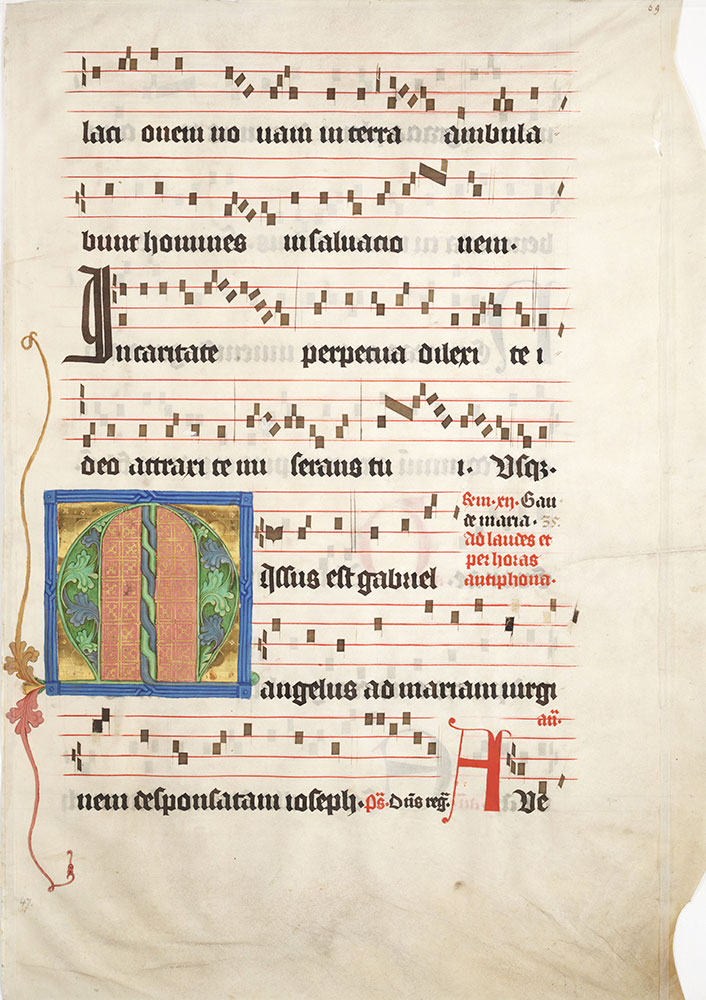 69
lacionem nouam in terra ambula
bunt homines in saluacionem.
In caritate perpetua dilexi te i
deo attraxi te miserans tui. Usqz.
Rem.xij. Gau
de maria. 35.
Ad laudes et
per horas
antiphona.
Missus est gabriel
angelus ad mariam uirgi
nem desponsatam ioseph. ps. Dns reg. an. Aue
47.